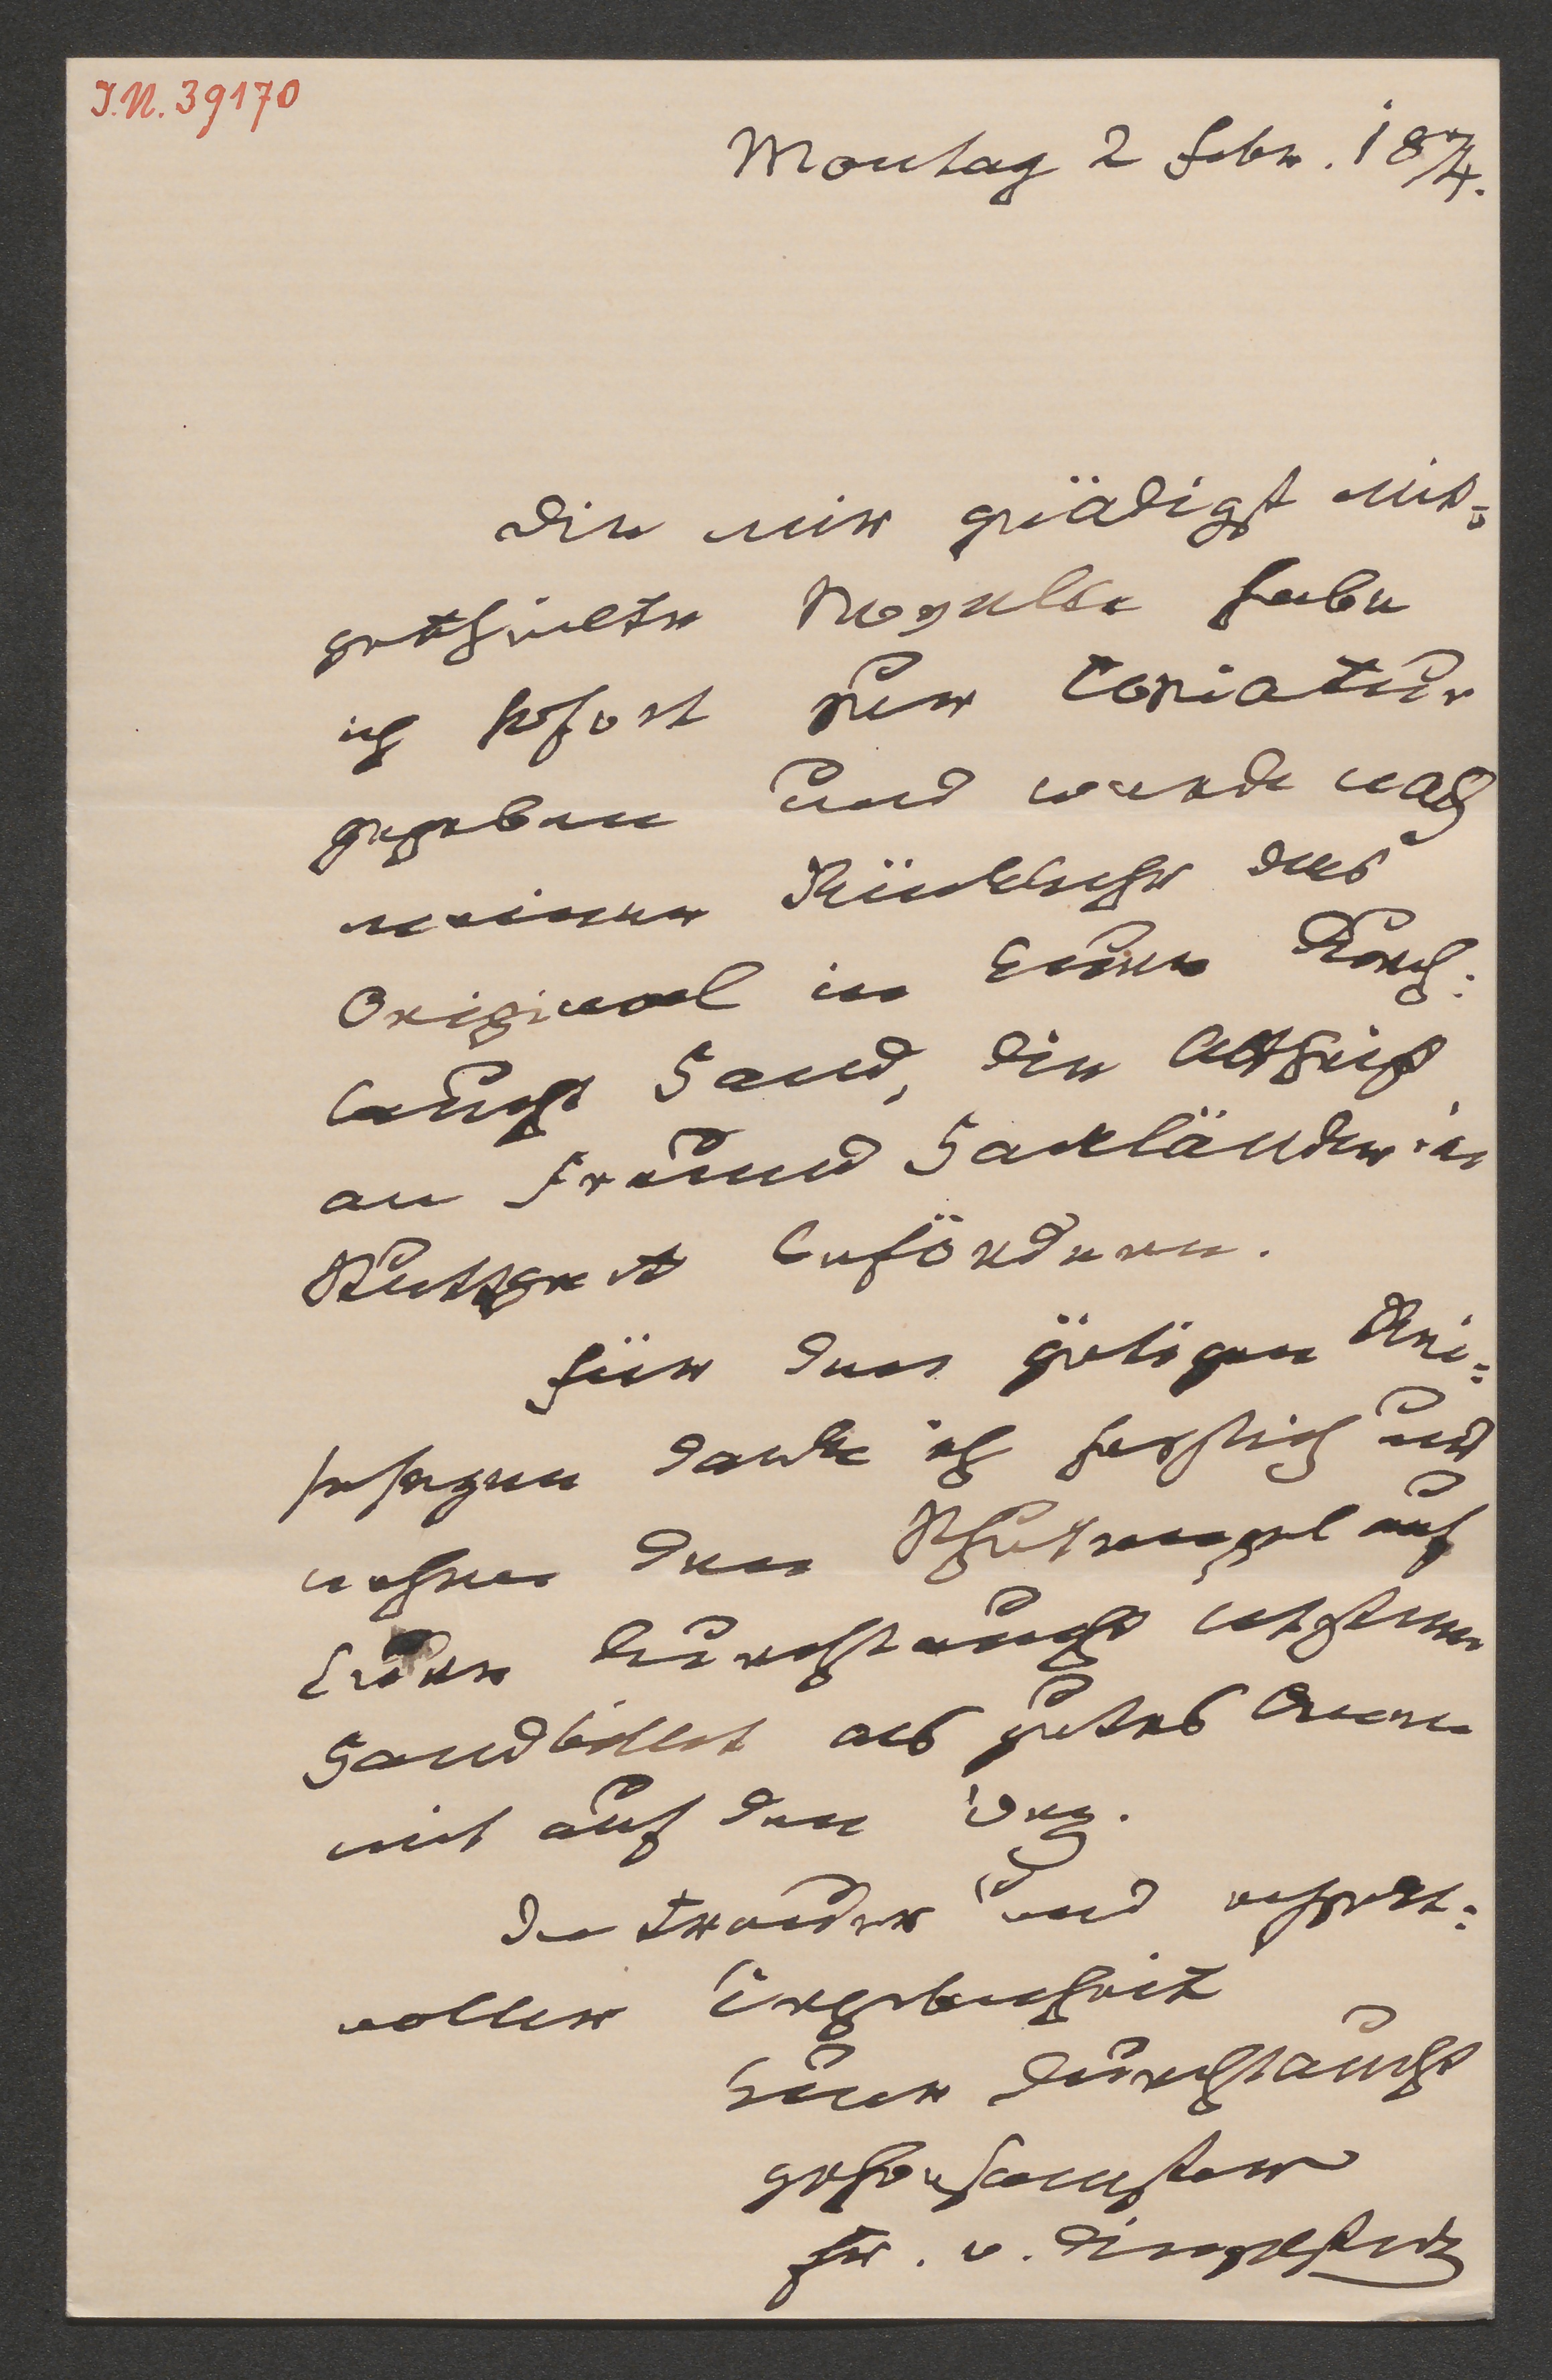 I.N. 39170
Montag 2 Febr. 1874.
Die mir gnädigst mit=
getheilte Novelle habe
ich sofort zur Copiatur
gegeben und werde nach
meiner Rückkehr das
Original in Eurer Durch=
laucht Hand, die Abschrift
an Freund Hackländer in
Stuttgart befördern.
Für den gütigen
danke ich herzlich und
nehme den auf
Eurer Durchlaucht letztem
Handbillet als gutes Omen
mit auf den Weg.
In treuer und respekt=
voller Ergebenheit
Eurer Durchlaucht
gehorsamster
Fr. v. Dingelstedt